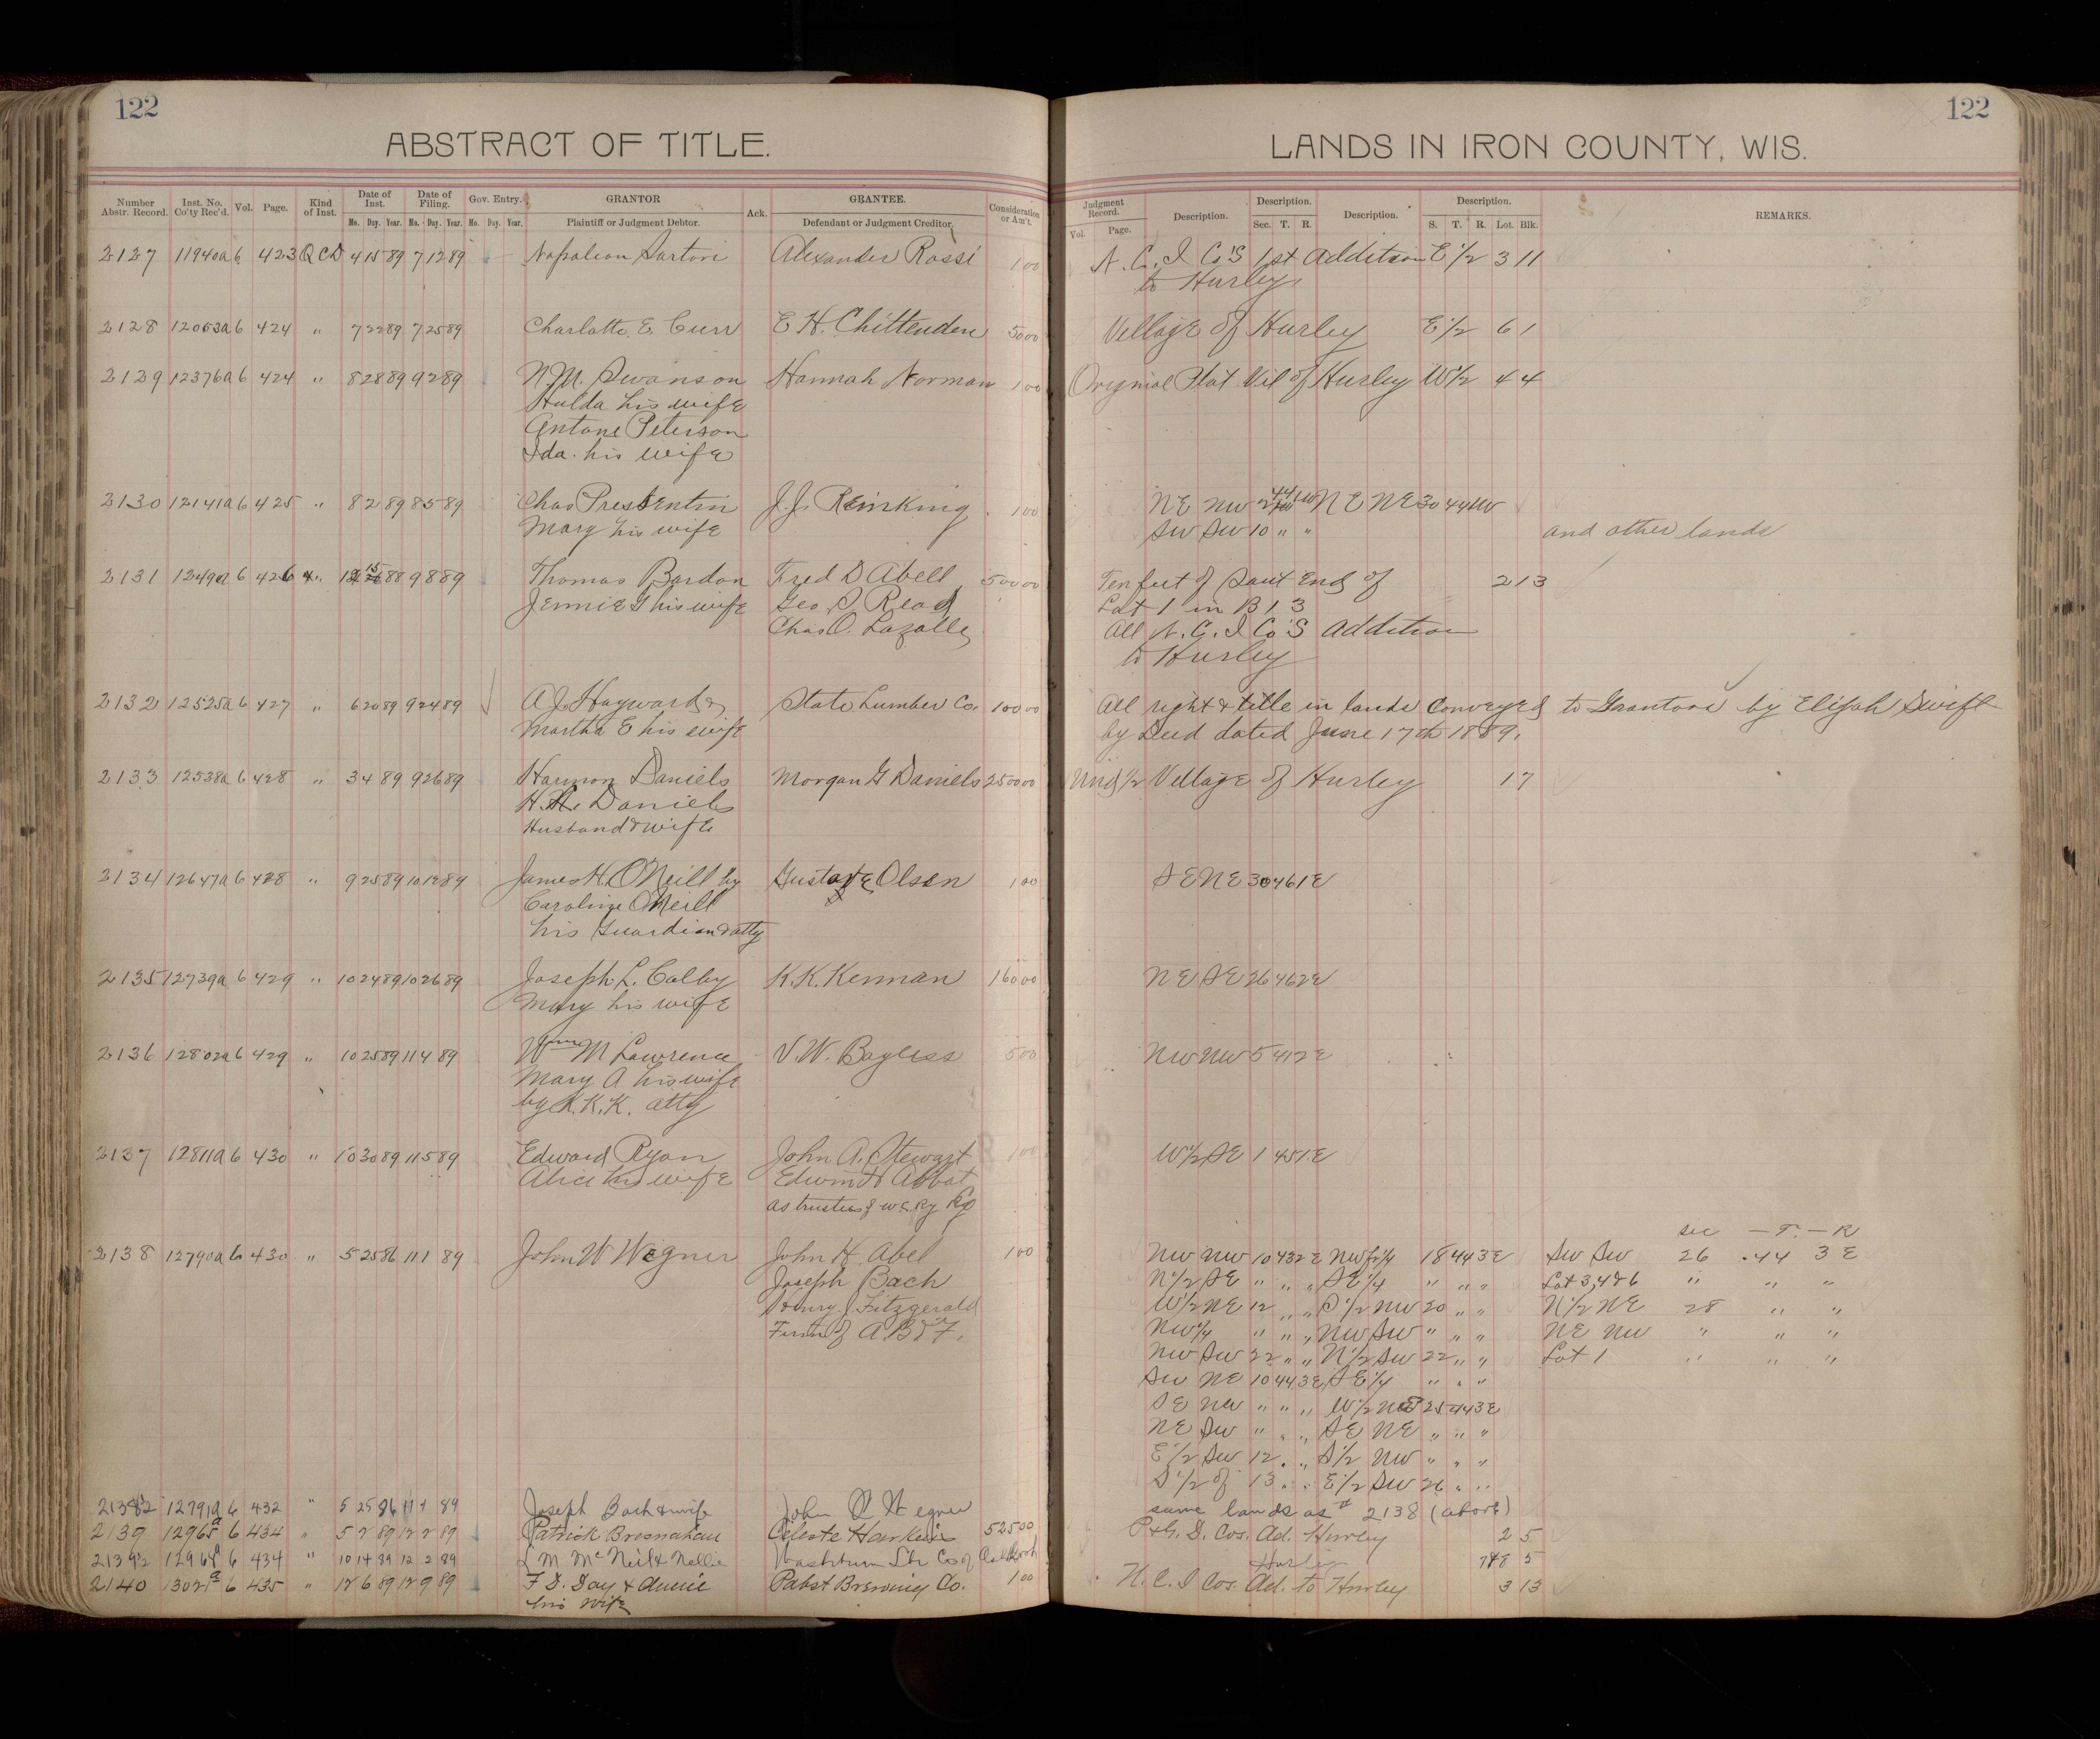 122
122
ABSTRACT OF TITLE.
LANDS IN IRON COUNTY, WIS.
Number Abstr. Record. Inst. No. Co'ty Rec'd. Vol. Page. Kind of Inst. Date of Inst. Mo. Day. Year. Date of Filing. Mo. Day. Year. Gov. Entry. Mo. Day. Year. GRANTOR Plaintiff or Judgment Debtor. Ack. GRANTEE. Defendant or Judgment Creditor. Consideration or Am't. Judgment Record. Vol. Page. Description. Description. Sec. T. R. Description. Description. S. T. R. Lot. Blk. REMARKS.
2127 11940a 6 423 QCD 4 15 89 7 12 89 Napoleon Sartori Alexander Rossi 1 00 N. C. I Co'S 1st Addition E 1/2 3 11
to Hurley
2128 12053a 6 424 " 7 22 89 7 25 89 Charlotte E. Curr E H. Chittenden 50 00 Village of Hurley E 1/2 6 1
2129 12376a 6 424 " 8 28 89 9 2 89 N. M. Swanson Hannah Norman 1 00 Original Plat Vil of Hurley W 1/2 4 4
Hulda his wife
Antone Peterson
Ida his wife
2130 12141a 6 425 " 8 2 89 8 5 89 Chas Pressentin J. J. Reinking 1 00 NE NW 44 1W NE NE 30 44 1W
Mary his wife SW SW 10 " " and other lands
2131 6 426 " 15 88 9 8 89 Thomas Bardon Fred D Abell 500 00 Ten feet of Sout End of 2 13
Jennie G his wife Geo. S. Read Lot 1 in B 13
Chas O. Lazalle All N. C. I Co'S Addition
to Hurley
2132 12525a 6 427 " 6 20 89 9 24 89 A J. Hayward & State Lumber Co. 100 00 All right & title in lands Conveyed to Grantors by Elijah Swift
Martha E his wife by Deed dated June 17th 1889.
2133 12538a 6 428 " 3 4 89 9 26 89 Harmon Daniels Morgan G Daniels 2500 00 Und 1/2 Village of Hurley 17
Daniels
Husband & wife
2134 12647a 6 428 " 9 25 89 10 12 89 James H. O'Neill by Gustave Olsen 1 00 SE NE 30 46 1E
Caroline O'Neill
his Guardian & atty
2135 12739a 6 429 " 10 24 89 10 26 89 Joseph L. Colby K. K. Kennan 160 00 NE SE 26 46 2E
Mary his wife
2136 12802a 6 429 " 10 25 89 11 4 89 Wm M Lawrence V. W. Bayless 5 00 NW NW 5 41 2E
Mary A his wife
by K. K. K. atty
2137 12811a 6 430 " 10 30 89 11 5 89 Edward Ryan John A. Stewart 1 00 W 1/2 SE 1 45 1E
Alice his wife Edwin H Abbot
as trustees of W. C. Ry Co
sec — T. — R
2138 12790a 6 430 " 5 25 86 11 1 89 John W Wegner John H. Abel 1 00 NW NW 10 43 2E NW fr 1/4 18 44 3E SW SW 26 44 3 E
Joseph Bach N 1/2 SE " " " SE 1/4 " " " Lot 3, 4 & 6 " " "
Henry J Fitzgerald W 1/2 NE 12 " " S 1/2 NW 20 " " N 1/2 NE 28 " "
Firm of A. B & F. NW 1/4 " " " NW SW " " " NE NW " " "
NW SW 22 " " N 1/2 SW 22 " " Lot 1 " " "
SW NE 10 44 3E SE 1/4 " " "
SE NW " " " W 1/2 25 44 3E
NE SW " " " SE NE " " "
E 1/2 SW 12 " " S 1/2 NW " " "
S 1/2 of 13 " " E 1/2 SW 26 " "
2138 1/2 12791a 6 432 " 5 25 86 11 1 89 Joseph Bach & wife John Wegner same lands as # 2138 (above)
2139 12965a 6 434 " 5 2 89 12 2 89 Patrick Bresnahan Celeste Harkein 525 00 P & G. D. Cos. Ad. Hurley 2 5
2139 1/2 12964a 6 434 " 10 14 89 12 2 89 L M McNeil & Nellie Washburn Lbr Co of Hurley 7 & 8 5
2140 13021a 6 435 " 12 6 89 12 9 89 F D. Day & Annie Pabst Brewing Co. 1 00 N. C. I Cos. Ad. to Hurley 3 13
his wife